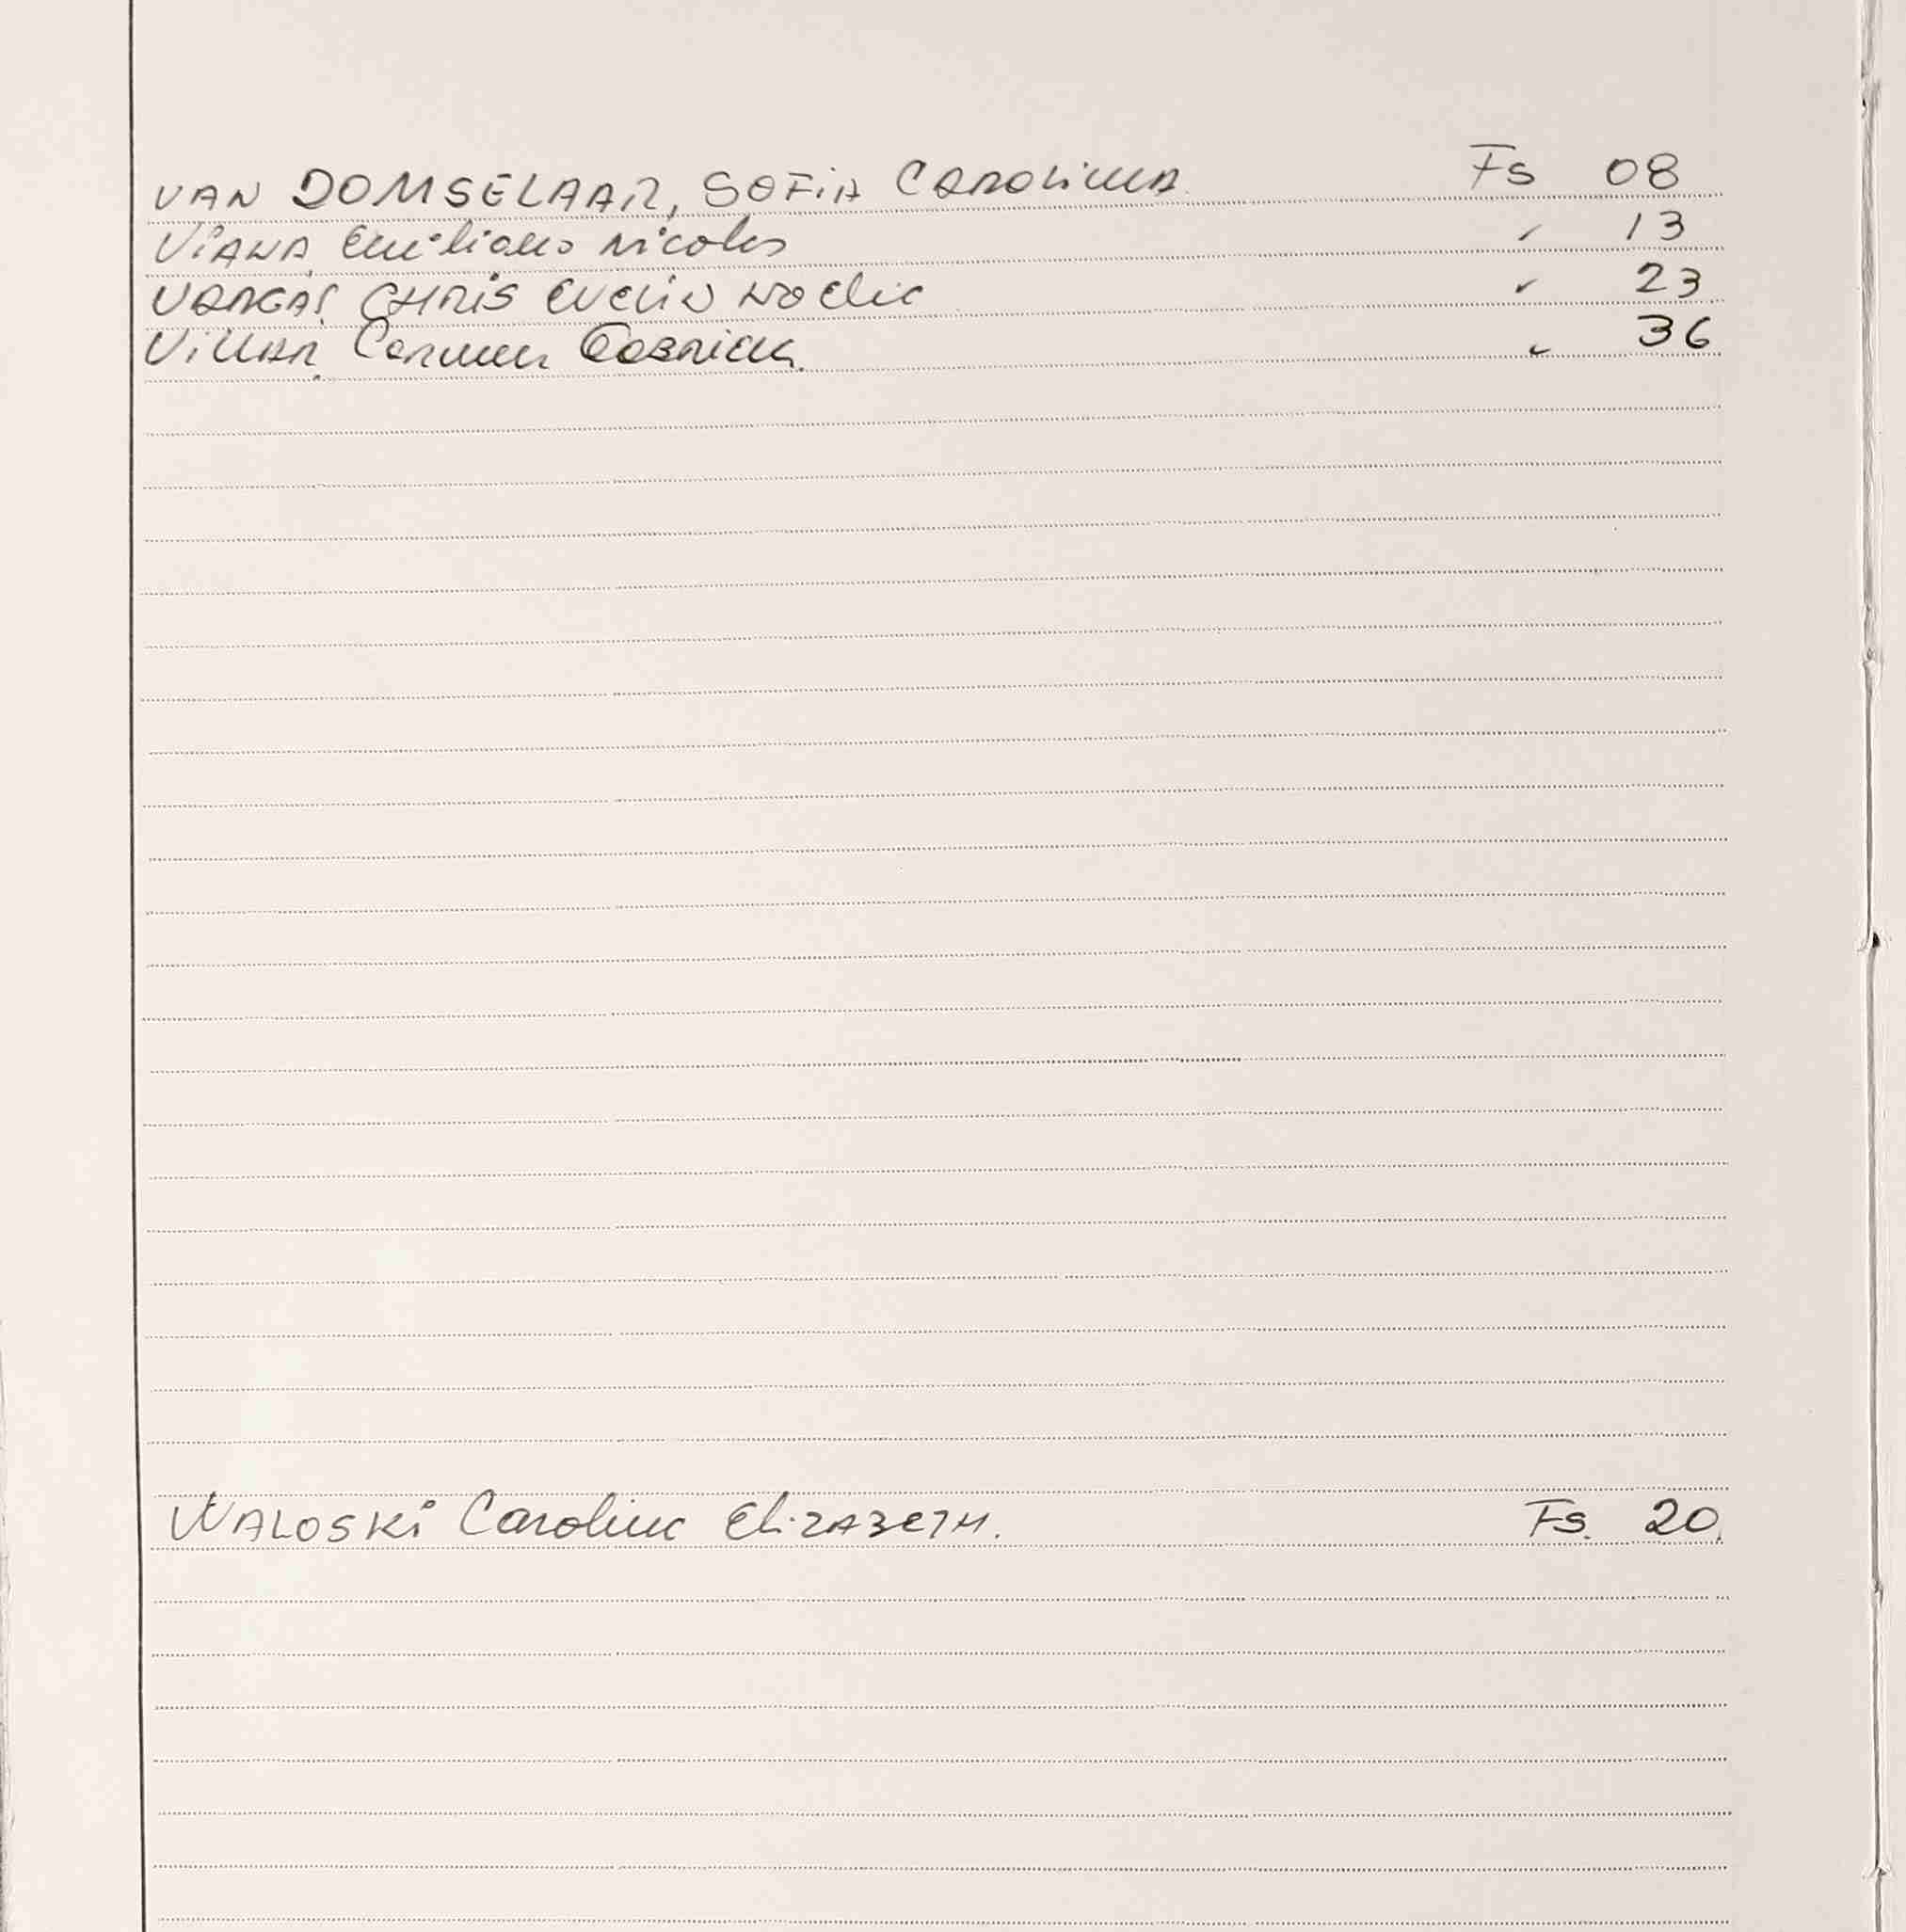 VAN DOMSELAAR, SOFIA CAROLINA Fs 08
VIANA Emiliano Nicolas " 13
VARGAS CHRIS EVELIN NOELIE " 23
VILLAR Carmen " 36
WALOSKI Carolina ELIZABETH. Fs. 20.